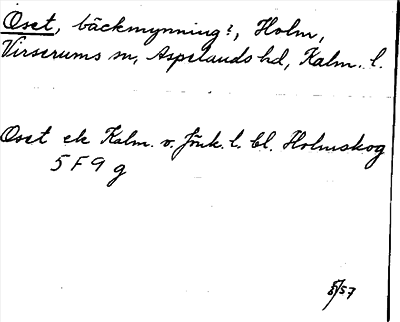 Oset, bäckmynning?, Holm,
Virserums sn, Aspelands hd, Kalm. l.
Oset ek Kalm. v. Jönk. l. bl. Holmskog
5 F 9 g
/57